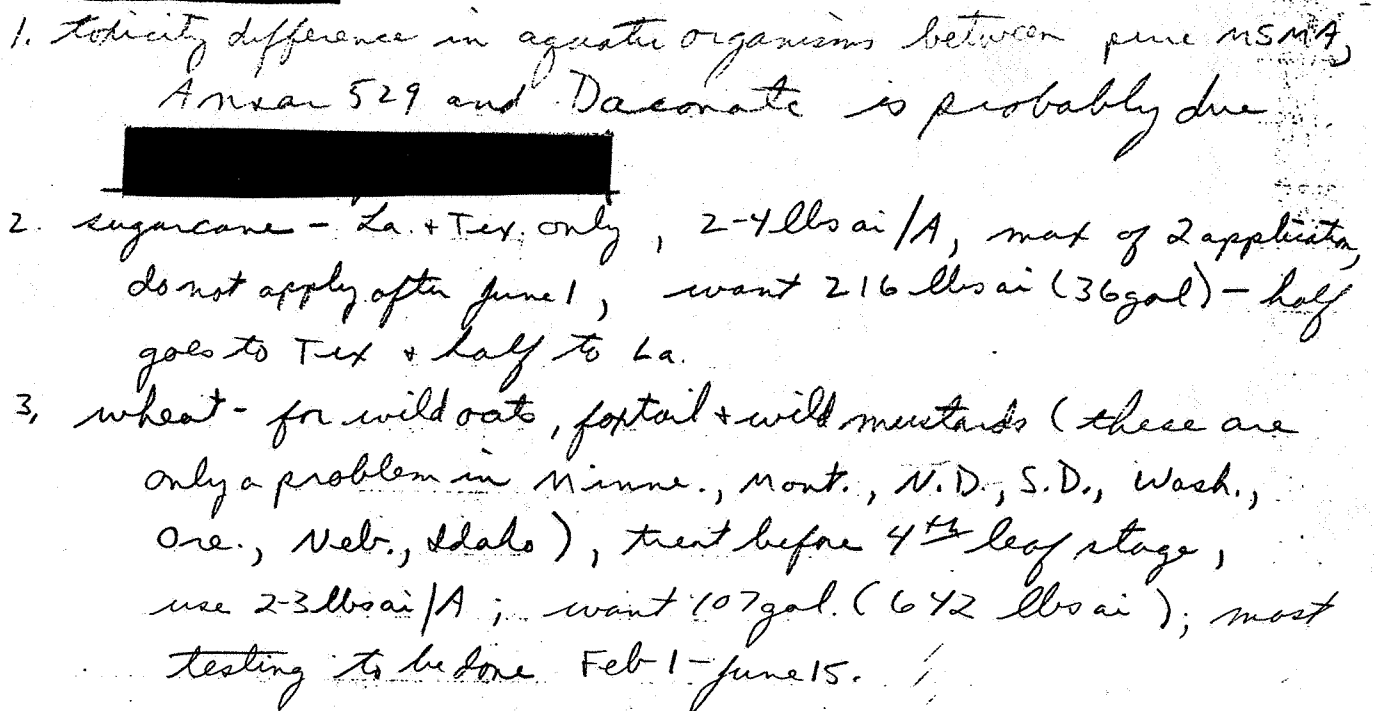 1. toxicity difference in aquatic organisms between pure MSMA,
Ansar 529 and Daconate is probably due
2. sugarcane - La. + Tex. only, 2-4 lbs ai/A, max of 2 application,
do not apply after June 1, want 216 lbs ai (36 gal) - half
goes to Tex + half to La.
3. wheat - for wild oats, foxtail + wild mustards (these are
only a problem in Minne., Mont., N.D., S.D., Wash.,
Ore., Neb., Idaho), treat before 4th leaf stage,
use 2-3 lbs ai/A; want 107 gal. (642 lbs ai); most
testing to be done Feb 1 - June 15.